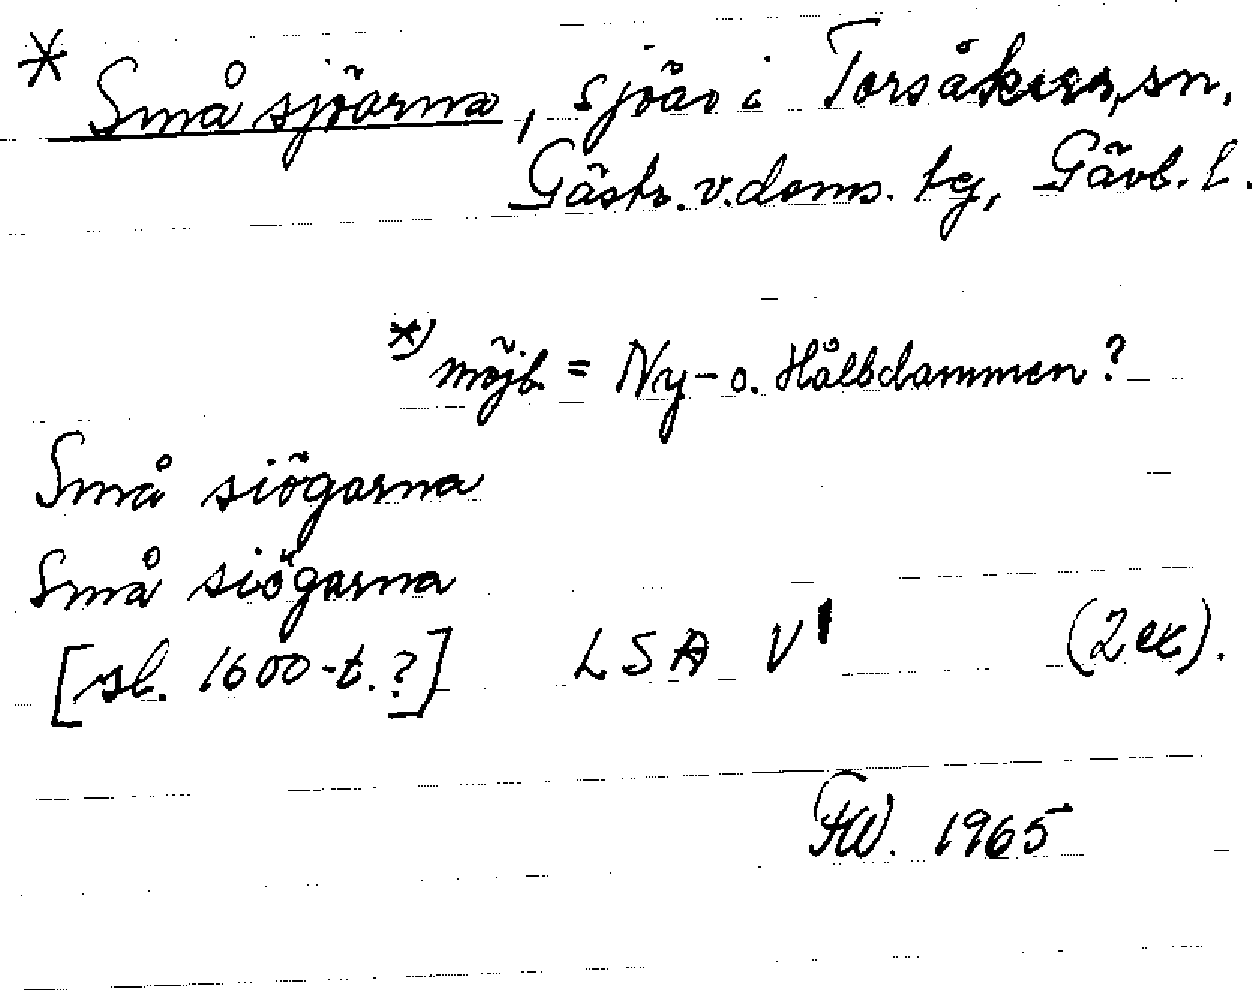 * Små sjöarna, sjöar i Torsåkers sn,
Gästr. v. doms. tg, Gävb. l.
*) möjl. = Ny- o. Hålldammen?
Små siögarna
Små siögarna
[sl. 1600-t.?] LSA V1 (2 ex).
FW. 1965